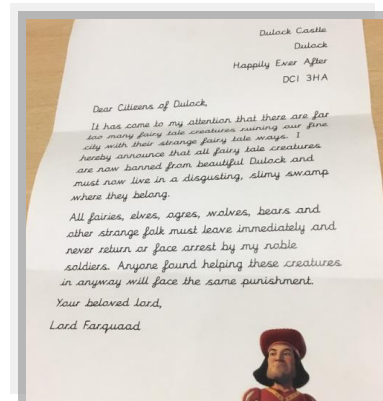 Dulock Castle
Dulock
Happily Ever After
DC1 3HA
Dear Citizens of Dulock,
It has come to my attention that there are far
too many fairy tale creatures ruining our fine
city with their strange fairy tale ways. I
hereby announce that all fairy tale creatures
are now banned from beautiful Dulock and
must now live in a disgusting, slimy swamp
where they belong.
All fairies, elves, ogres, wolves, bears and
other strange folk must leave immediately and
never return or face arrest by my noble
soldiers. Anyone found helping these creatures
in anyway will face the same punishment.
Your beloved lord,
Lord Farquaad